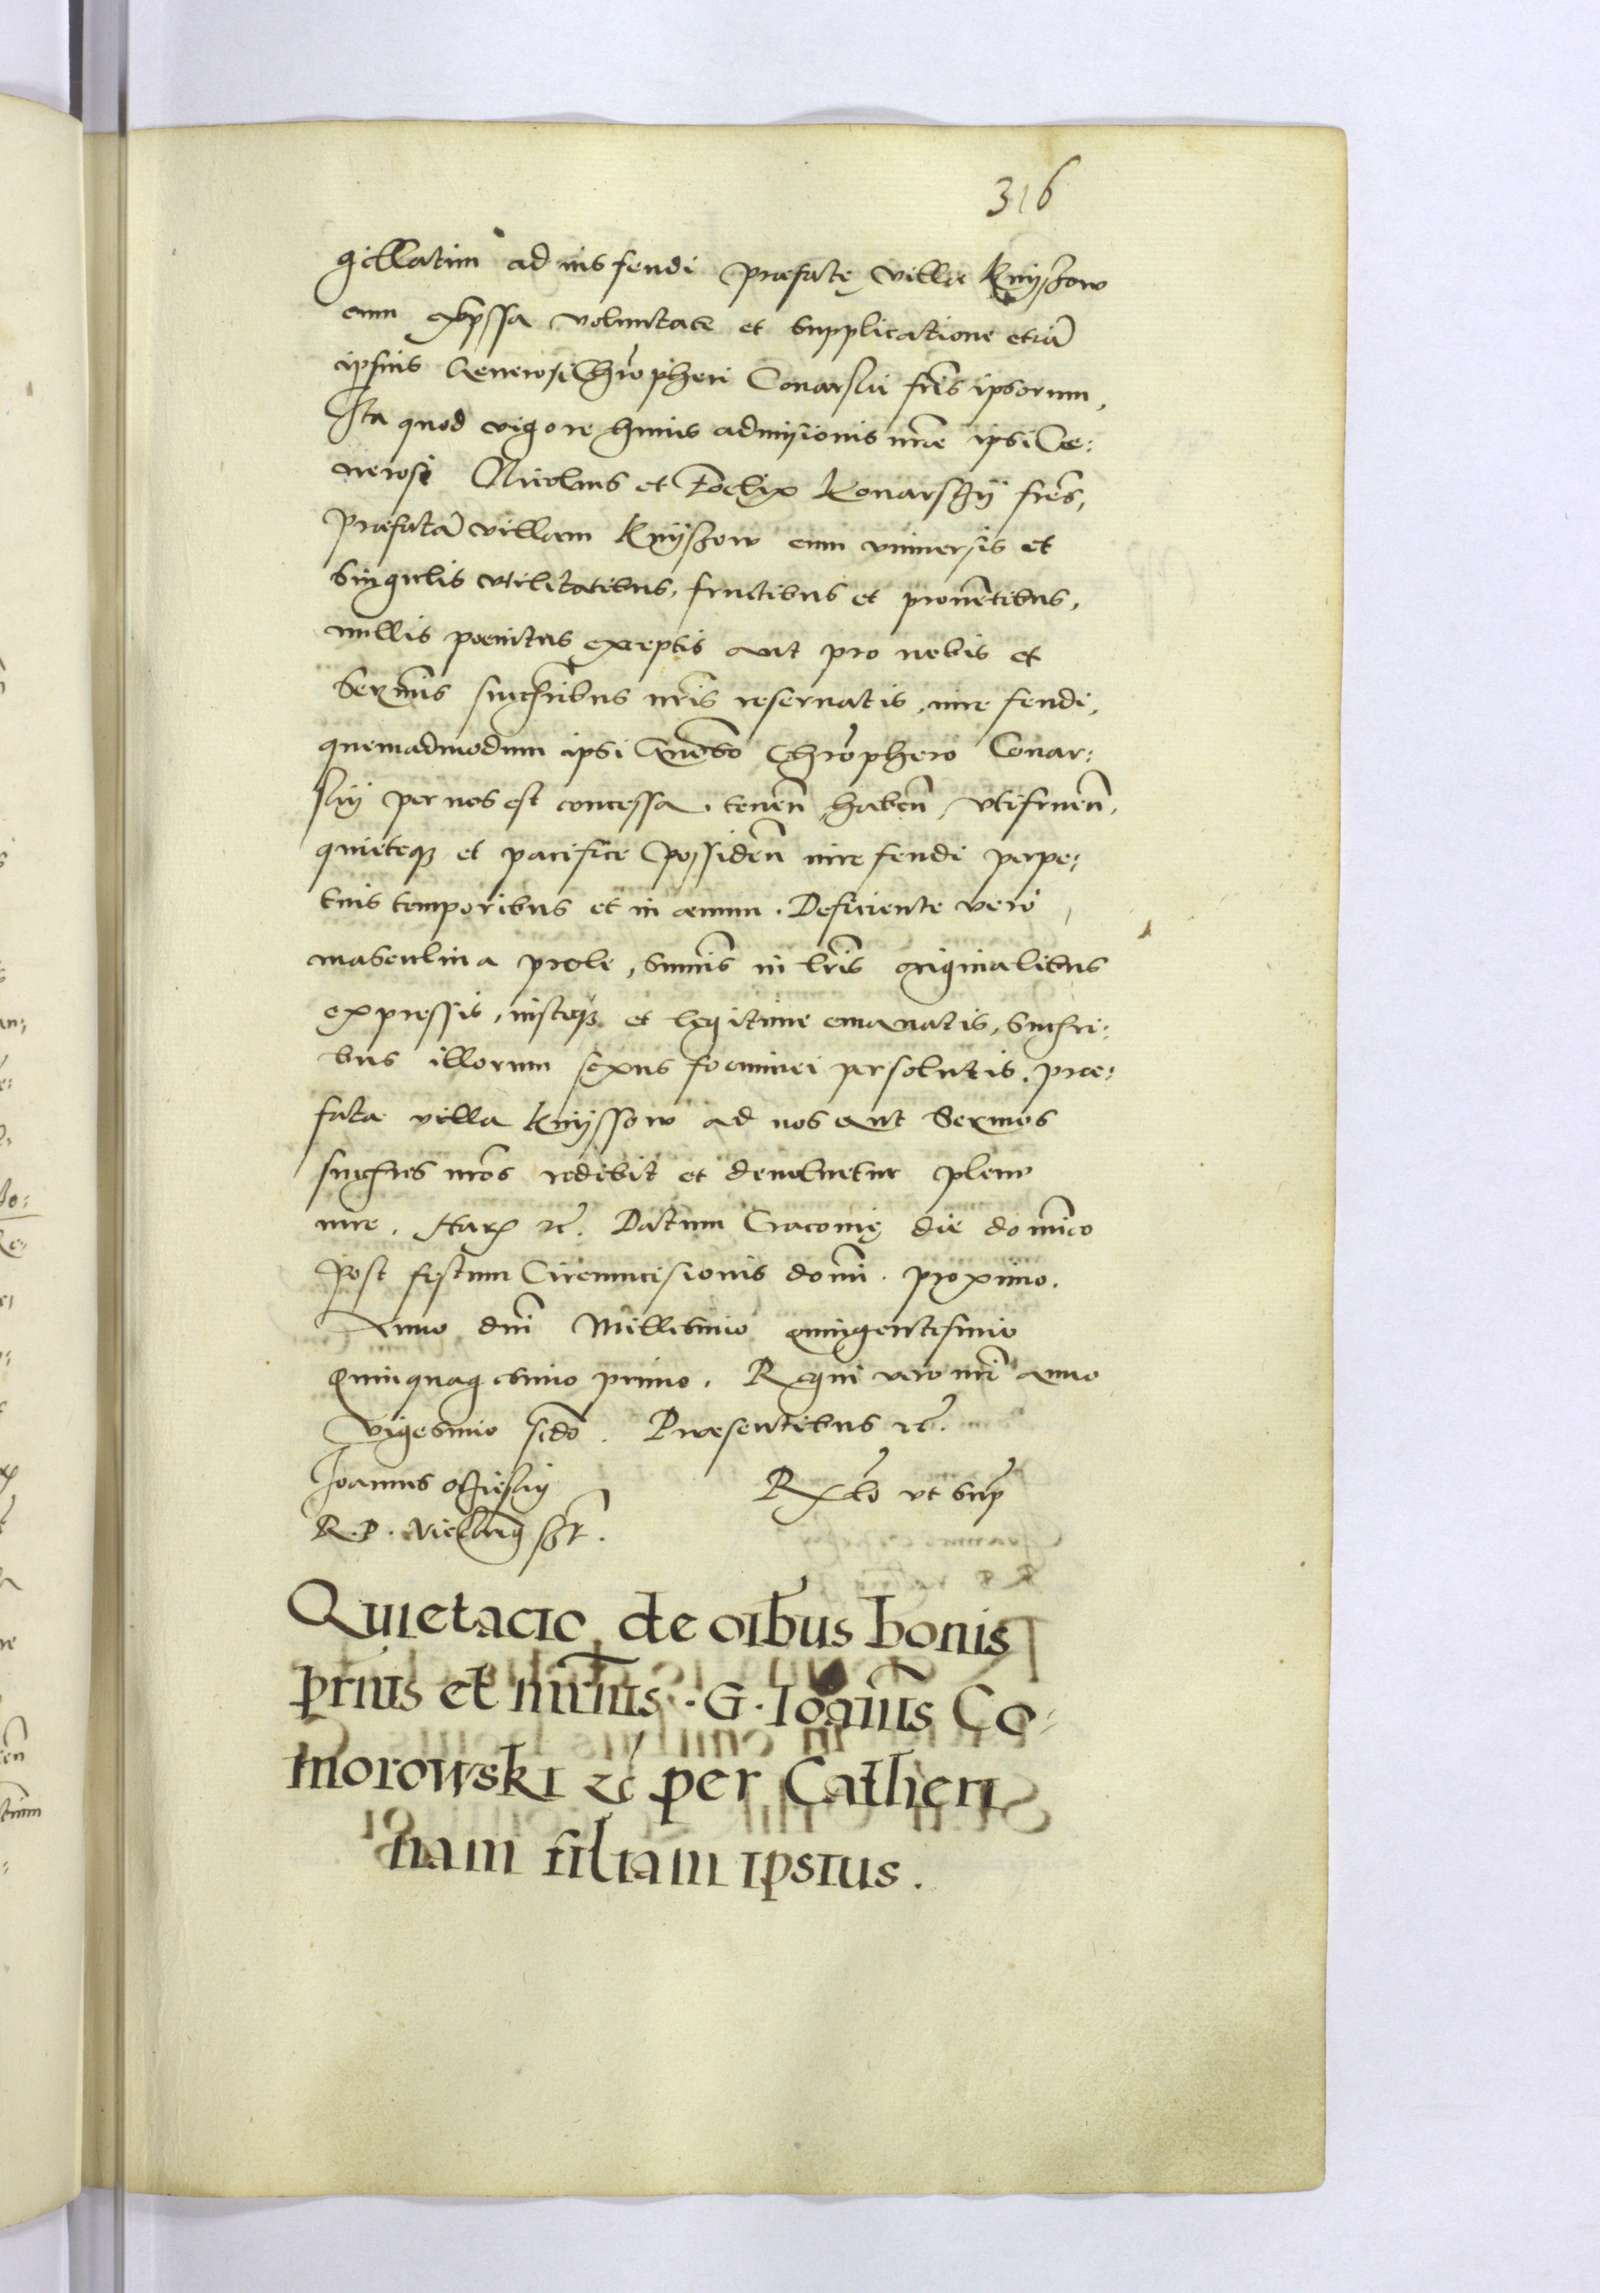 316
gillatim ad ius feudi praefatę villae Knyschow
cum expssa voluntate et supplicatione etiā
ipsius Generosi Chrophori Conarskii fris ipsorum,
Ita quod vigore huius admissionis nrae ipsi Ge:
nerosi Nicolaus et Foelix Konarskij fres,
praefatā villam Knyschow cum vniuersis et
singulis vtilitatibus, fructibus et prouētibus,
nullis poenitus exceptis aut pro nobis et
Sermis succribus nris reseruatis, iure feudi,
quemadmodum ipsi Gnoso Chrophero Conar:
skij per nos est concessa. tenen haben, vtifruen,
quieteq et pacifice possiden iure feudi perpe:
tuis temporibus et in aeuum. Deficiente vero
masculina prole, summis in lris originalibus
expressis, iusteq et legitime emanatis, succri:
bus illorum sexus foeminei persolutis, prae:
fata villa Knyssow ad nos aut Sermos
succres nros redibit et deuoluetur pleno
iure. Harȝ etc. Datum Cracouię die domico
post festum Circumcisionis domi. proximo.
Anno dni Millesimo quingentesimo
quinquagesimo primo. Regni vero nri anno
vigesimo scdo. Praesentibus etc.
Joannes ocieski
R. P. vicecancę sst.
Rxlo vt sup
Quietacio de oibus bonis
prnis et mrnis. G. Ioanis Co=
morowski etc per Catheri
nam filiam ipsius.